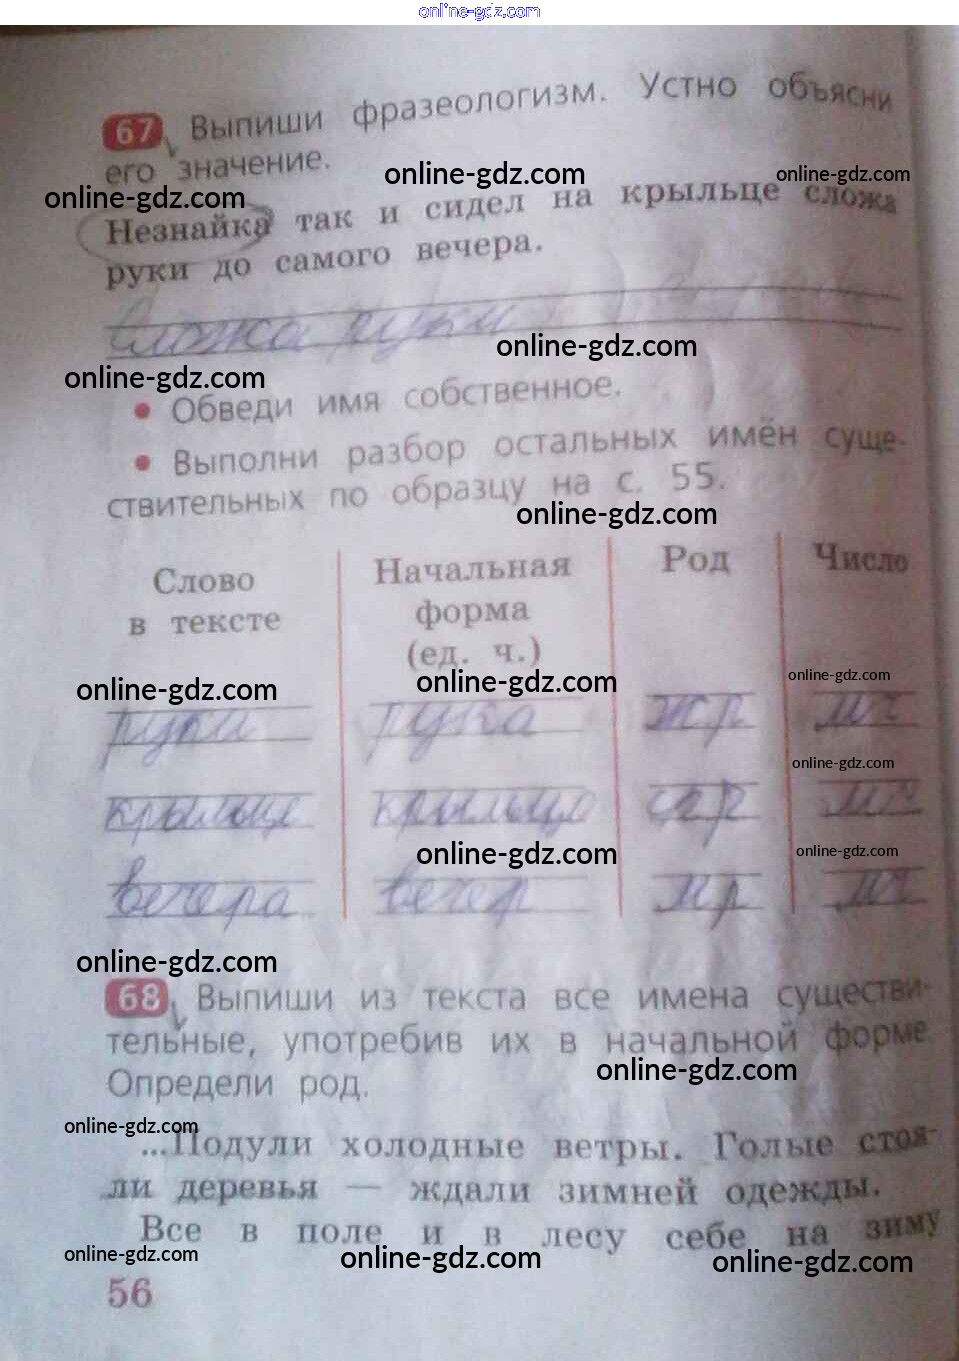 online-gdz.com
67 Выпиши фразеологизм. Устно объясни
его значение.
online-gdz.com online-gdz.com
online-gdz.com
Незнайка так и сидел на крыльце сложа
руки до самого вечера.
Сложа руки
online-gdz.com
online-gdz.com
• Обведи имя собственное.
• Выполни разбор остальных имён суще-
ствительных по образцу на с. 55.
online-gdz.com
Слово в тексте Начальная форма (ед. ч.) Род Число
online-gdz.com online-gdz.com online-gdz.com
руки рука ж р м ч
online-gdz.com
крыльце крыльцо ср р
online-gdz.com online-gdz.com
вечера вечер м р
online-gdz.com
68 Выпиши из текста все имена существи-
тельные, употребив их в начальной форме.
Определи род.
online-gdz.com
online-gdz.com
...Подули холодные ветры. Голые стоя-
ли деревья — ждали зимней одежды.
Все в поле и в лесу себе на зиму
online-gdz.com online-gdz.com online-gdz.com
56